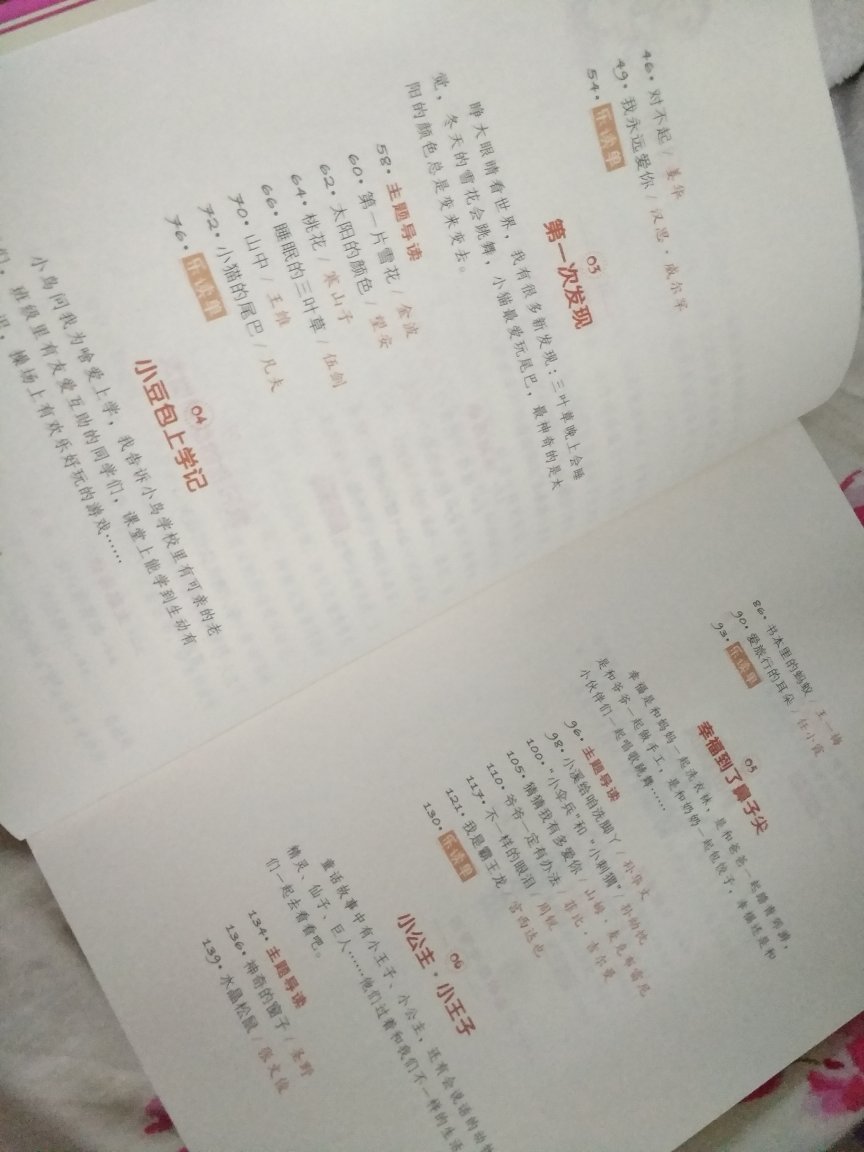 46·对不起/姜华
49·我永远爱你/汉思·威尔罕
54·乐读单
03
第一次发现
睁大眼睛看世界，我有很多新发现：三叶草晚上会睡
觉，冬天的雪花会跳舞，小猫最爱玩尾巴，最神奇的是太
阳的颜色总是变来变去。
58·主题导读
60·第一片雪花/金波
62·太阳的颜色/望安
64·桃花/寒山子
66·睡眠的三叶草/伍剑
70·山中/王维
72·小猫的尾巴/凡夫
76·乐读单
04
小豆包上学记
小鸟问我为啥爱上学，我告诉小鸟学校里有可亲的老
们，班级里有友爱互助的同学们，课堂上能学到生动有
操场上有欢乐好玩的游戏……
86·书本里的蚂蚁/王一梅
90·爱旅行的耳朵/任小霞
93·乐读单
05
幸福到了鼻子尖
幸福是和妈妈一起洗衣袜，是和爸爸一起踏青郊游，
是和爷爷一起做手工，是和奶奶一起包饺子，幸福还是和
小伙伴们一起唱歌跳舞……
96·主题导读
98·小溪给咱洗脚丫/孙华文
100·“小伞兵”和“小刺猬”/孙幼忱
105·猜猜我有多爱你/山姆·麦克布雷尼
110·爷爷一定有办法/菲比·吉尔曼
117·不一样的眼泪/周锐
121·我是霸王龙/宫西达也
130·乐读单
06
小公主·小王子
童话故事中有小王子、小公主，还有会说话的动物
精灵、仙子、巨人……他们过着和我们不一样的生活
们一起去看看吧。
134·主题导读
136·神奇的窗子/圣野
139·水晶松鼠/张文俊